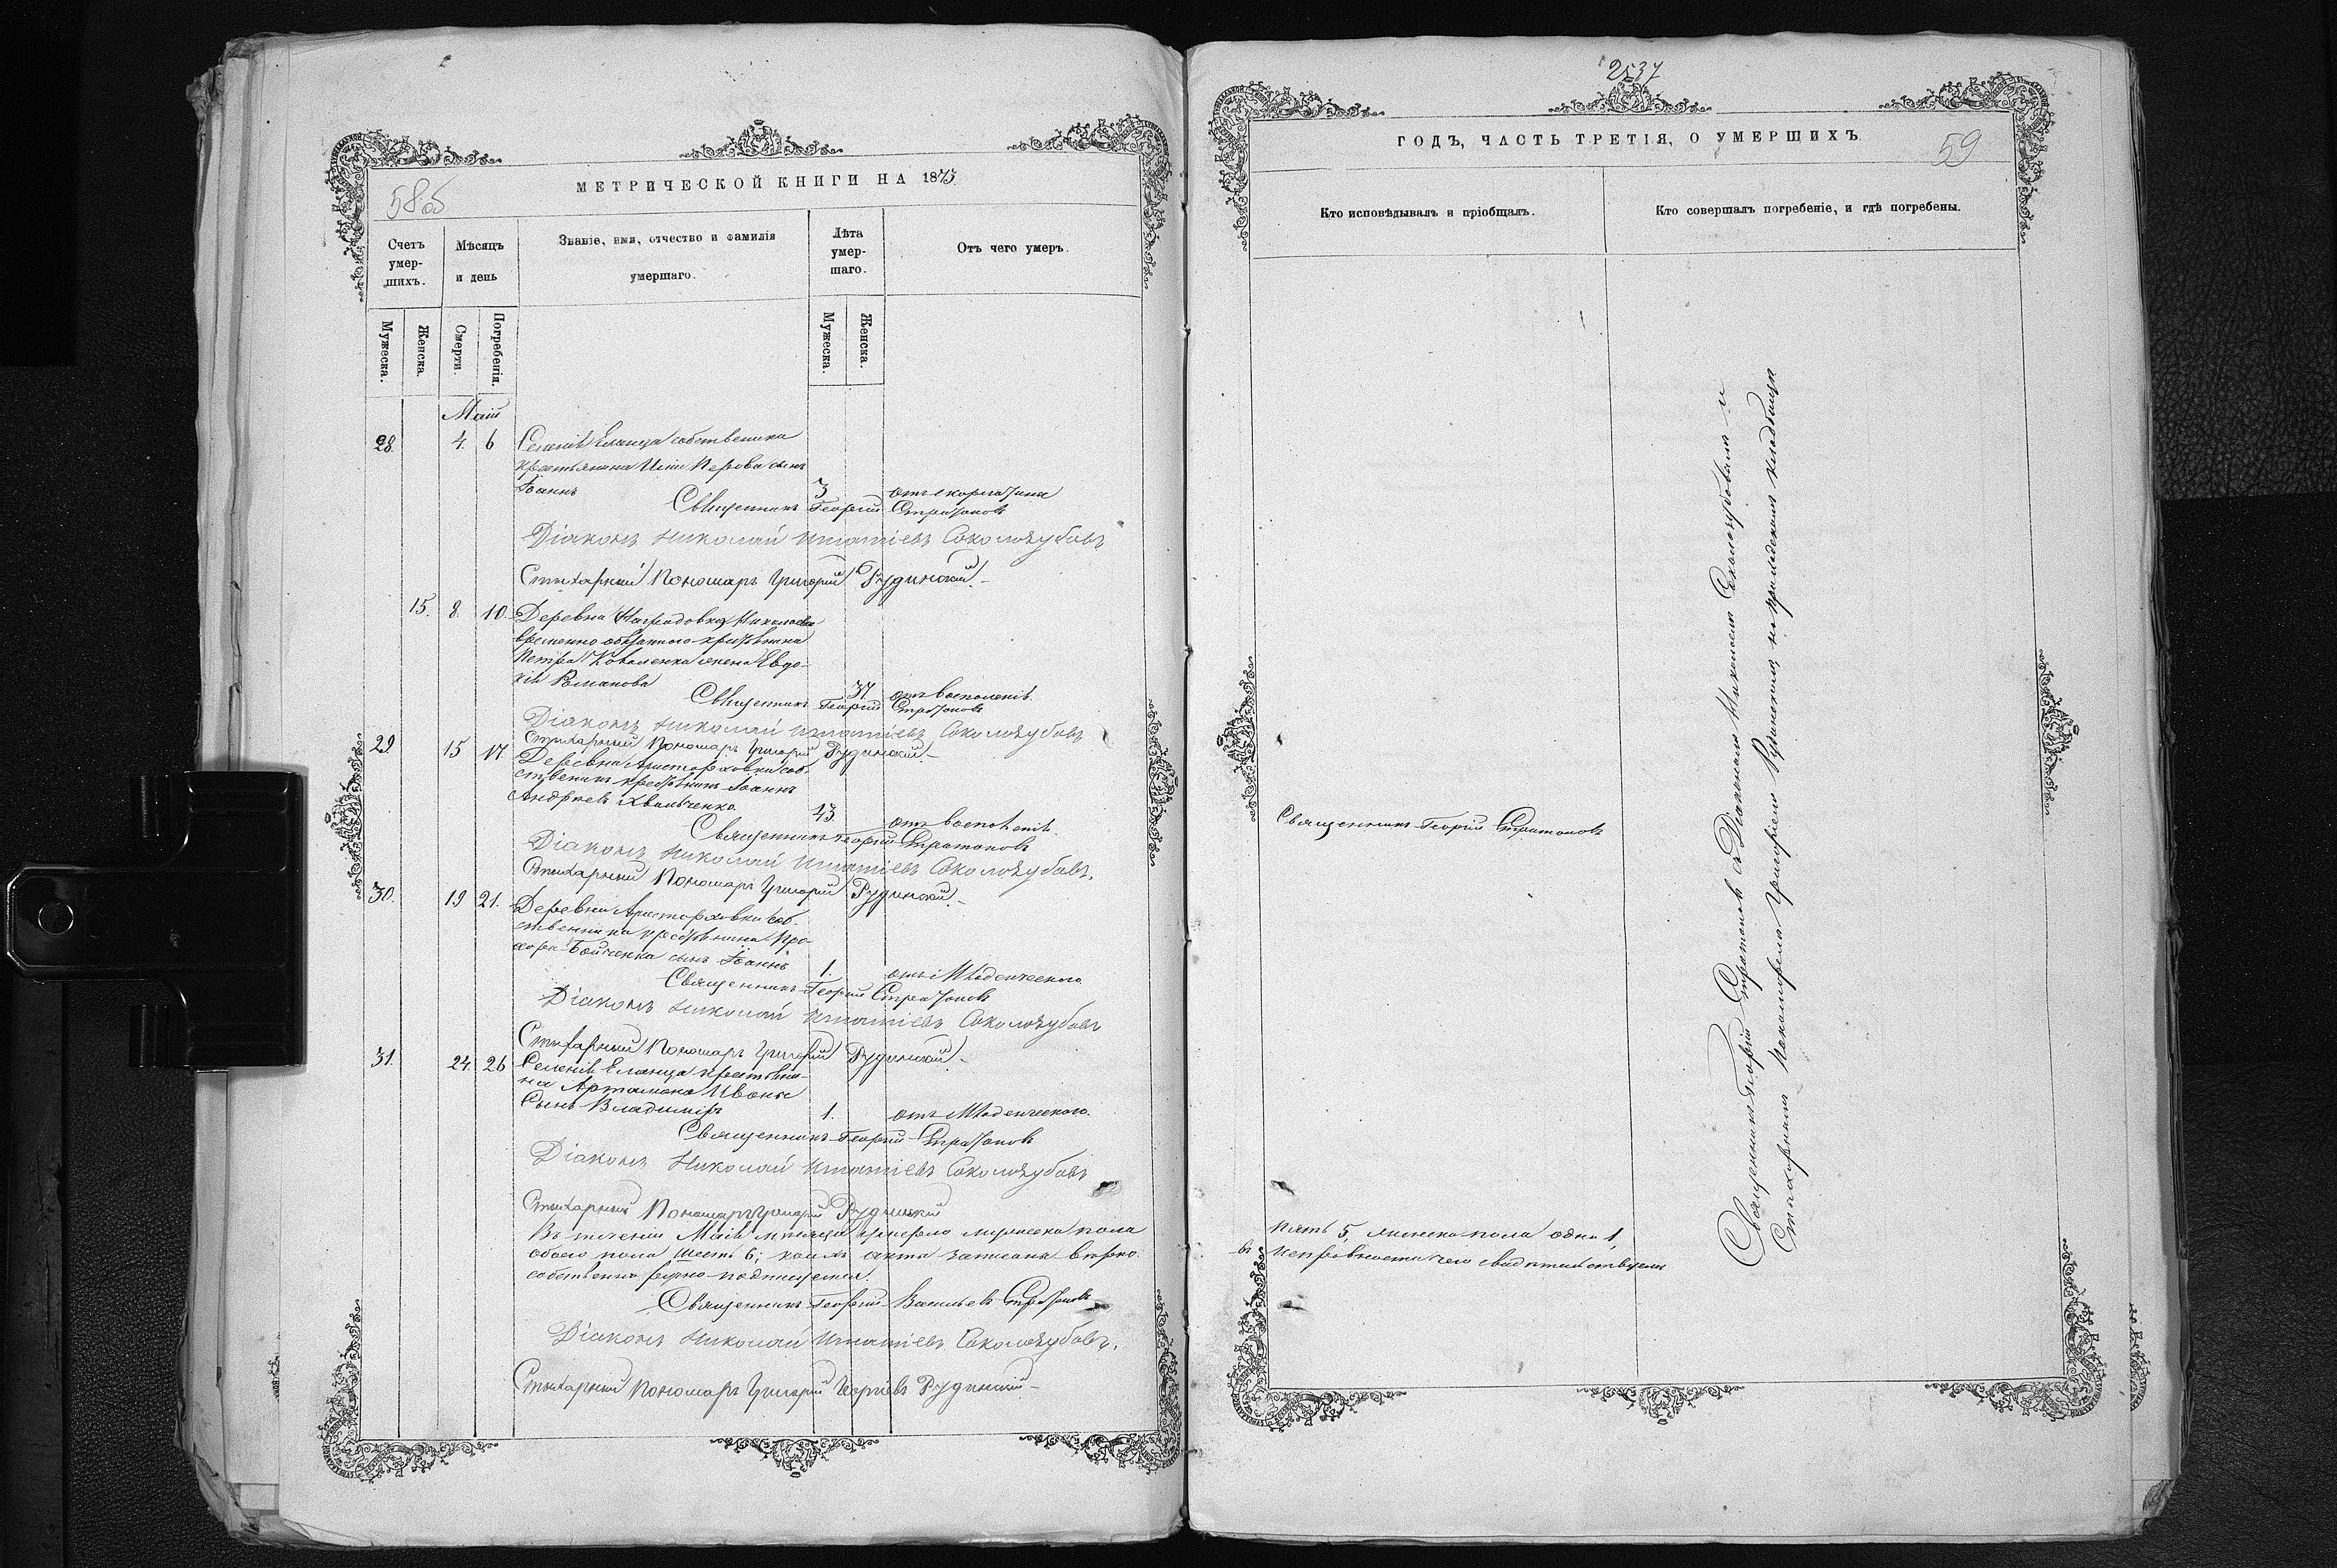 58об
МЕТРИЧЕСКОЙ КНИГИ НА 1873
Счетъ умер-шихъ.
Мѣсяцъ и день
Званіе, имя, отчество и фамилія умершаго.
Лѣта умер-шаго.
Отъ чего умеръ.
Мужеска.
Женска.
Смерти.
Погребенія.
Мужеска.
Женска.
Май
28. 4. 6 Селенія Еланца собственника
крестьянина сынъ
Іоаннъ 3 отъ скорлатины
Священникъ Георгій Стратоновъ
Діаконъ Николай Игнатіевъ Соколозубовъ
Стихарный Пономарь Григорій Рудинскій.
15. 8. 10. Деревни Николаева
временно обязаннаго крестьянина
Петра Коваленка жена Евдо-
кія Романова 37 отъ воспаленія
Священникъ Георгій Стратоновъ
Діаконъ Николай Игнатіевъ Соколозубовъ
Стихарный Пономарь Григорій Рудинскій.
29 15 17 Деревни Аристарховки соб-
ственникъ крестьянинъ Іоаннъ
Андреевъ 43 отъ воспаленія.
Священникъ Георгій Стратоновъ
Діаконъ Николай Игнатіевъ Соколозубовъ.
Стихарный Пономарь Григорій Рудинскій.
30. 19 21. Деревни Аристарховки соб-
ственника крестьянина Про-
хора Бойченка сынъ Іоаннъ 1. отъ Младенческаго
Священникъ Георгій Стратоновъ
Діаконъ Николай Игнатіевъ Соколозубовъ
Стихарный Пономарь Григорій Рудинскій.
31. 24. 26 Селенія Еланца крестьяни-
на Артамона Ивоны
Сынъ Владиміръ 1. отъ Младенческаго.
Священникъ Георгій Стратоновъ
Діаконъ Николай Игнатіевъ Соколозубовъ
Стихарный Пономарь Григорій Рудинскій
Въ теченіи Маія мѣсяца умерло мужеска пола
обоего пола шесть 6; акты записаны вѣрно
собственноручно подпишемся.
Священникъ Георгій Васильевъ Стратоновъ
Діаконъ Николай Игнатіевъ Соколозубовъ.
Стихарный Пономарь Григорій Рудинскій
2537
59
ГОДЪ, ЧАСТЬ ТРЕТІЯ, О УМЕРШИХЪ.
Кто исповѣдывалъ и пріобщалъ.
Кто совершалъ погребеніе, и гдѣ погребены.
Священникъ Георгій Стратоновъ
Священникъ Георгій Стратоновъ съ Діакономъ Николаемъ Соколозубовымъ и
Стихарнымъ Пономаремъ Григоріемъ Рудинскимъ, на приходскомъ кладбищѣ
пять 5, женска пола одна 1,
въ чего свидѣтельствуемъ